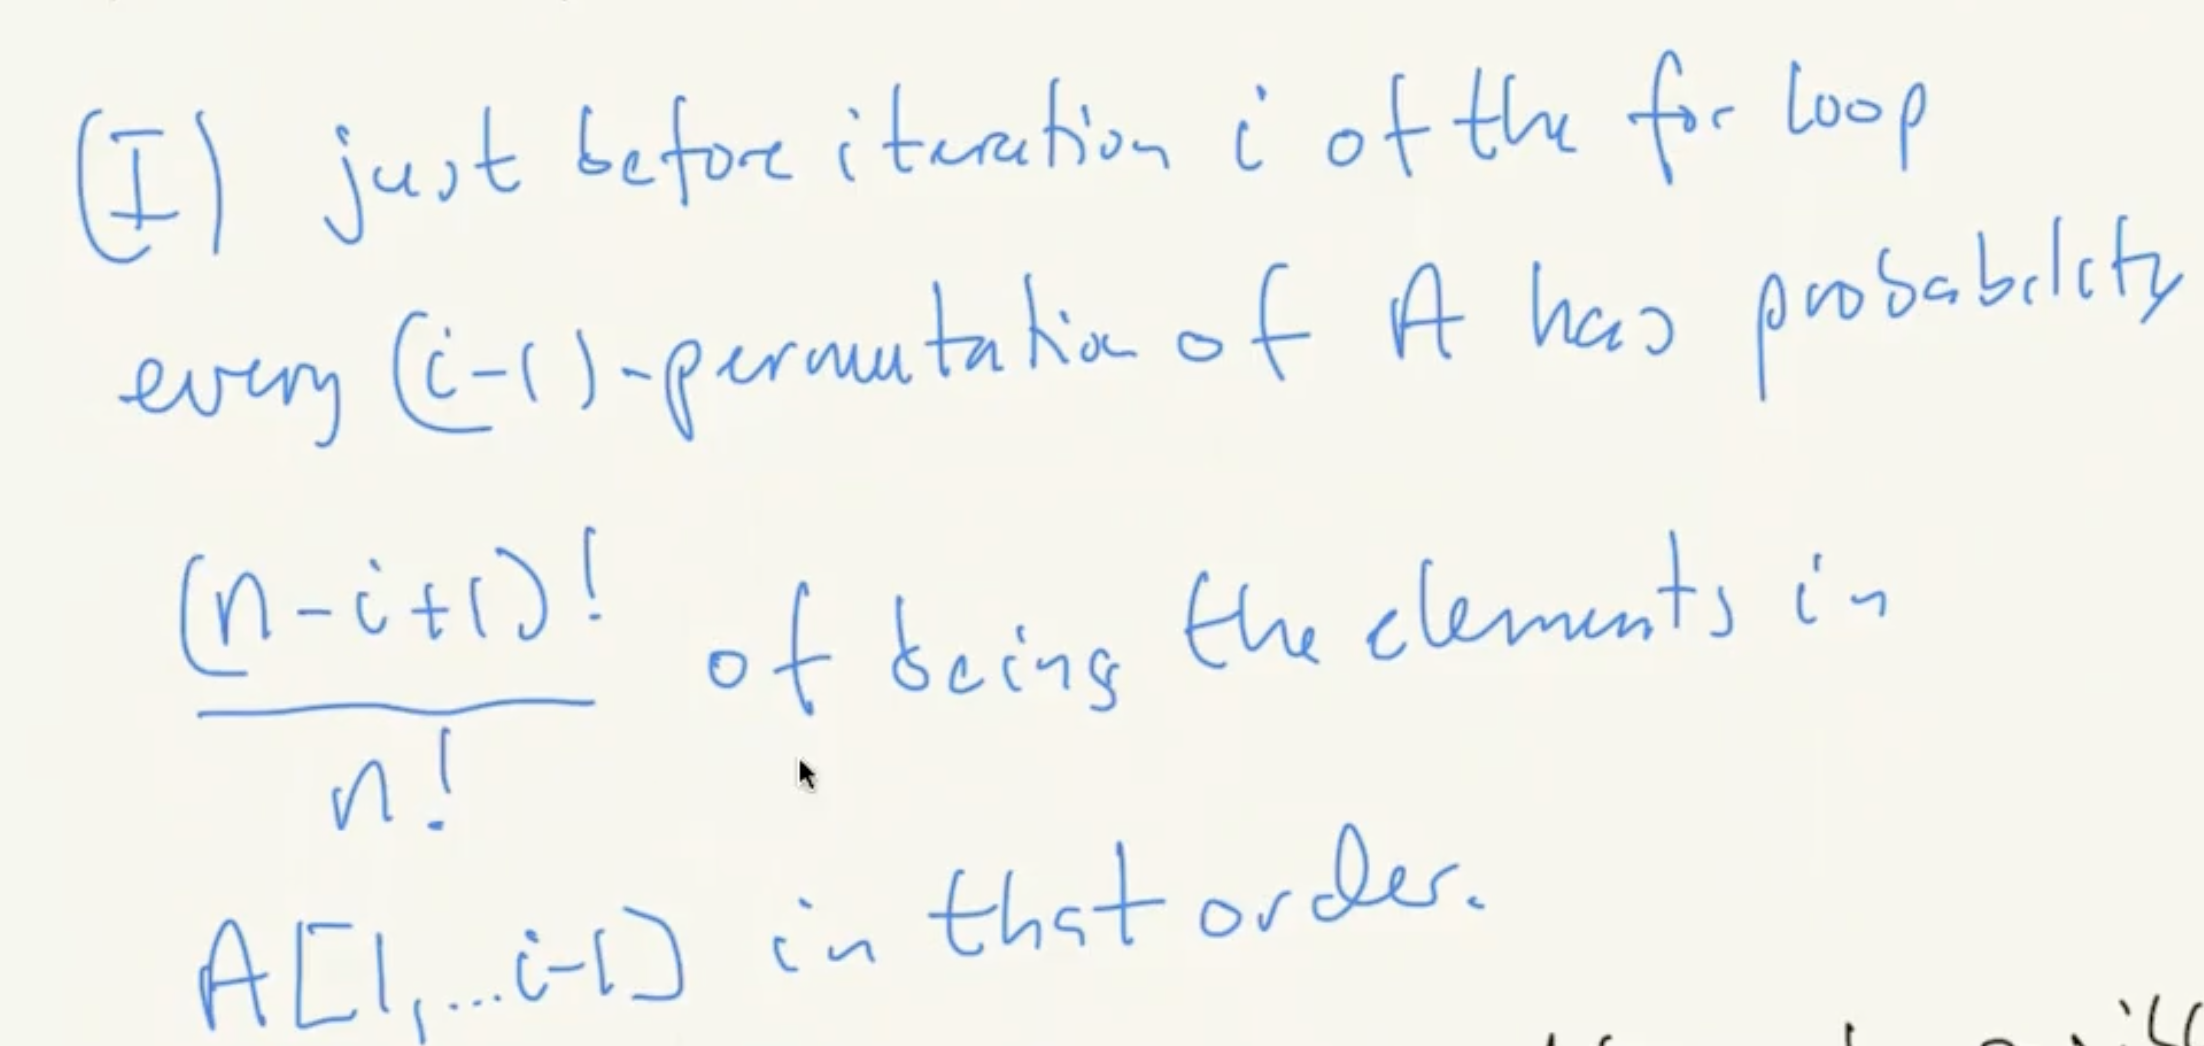 (I) just before iteration i of the for loop
every (i-1)-permutation of A has probability
(n-i+1)! of being the elements in
n!
A[1,...i-1] in that order.